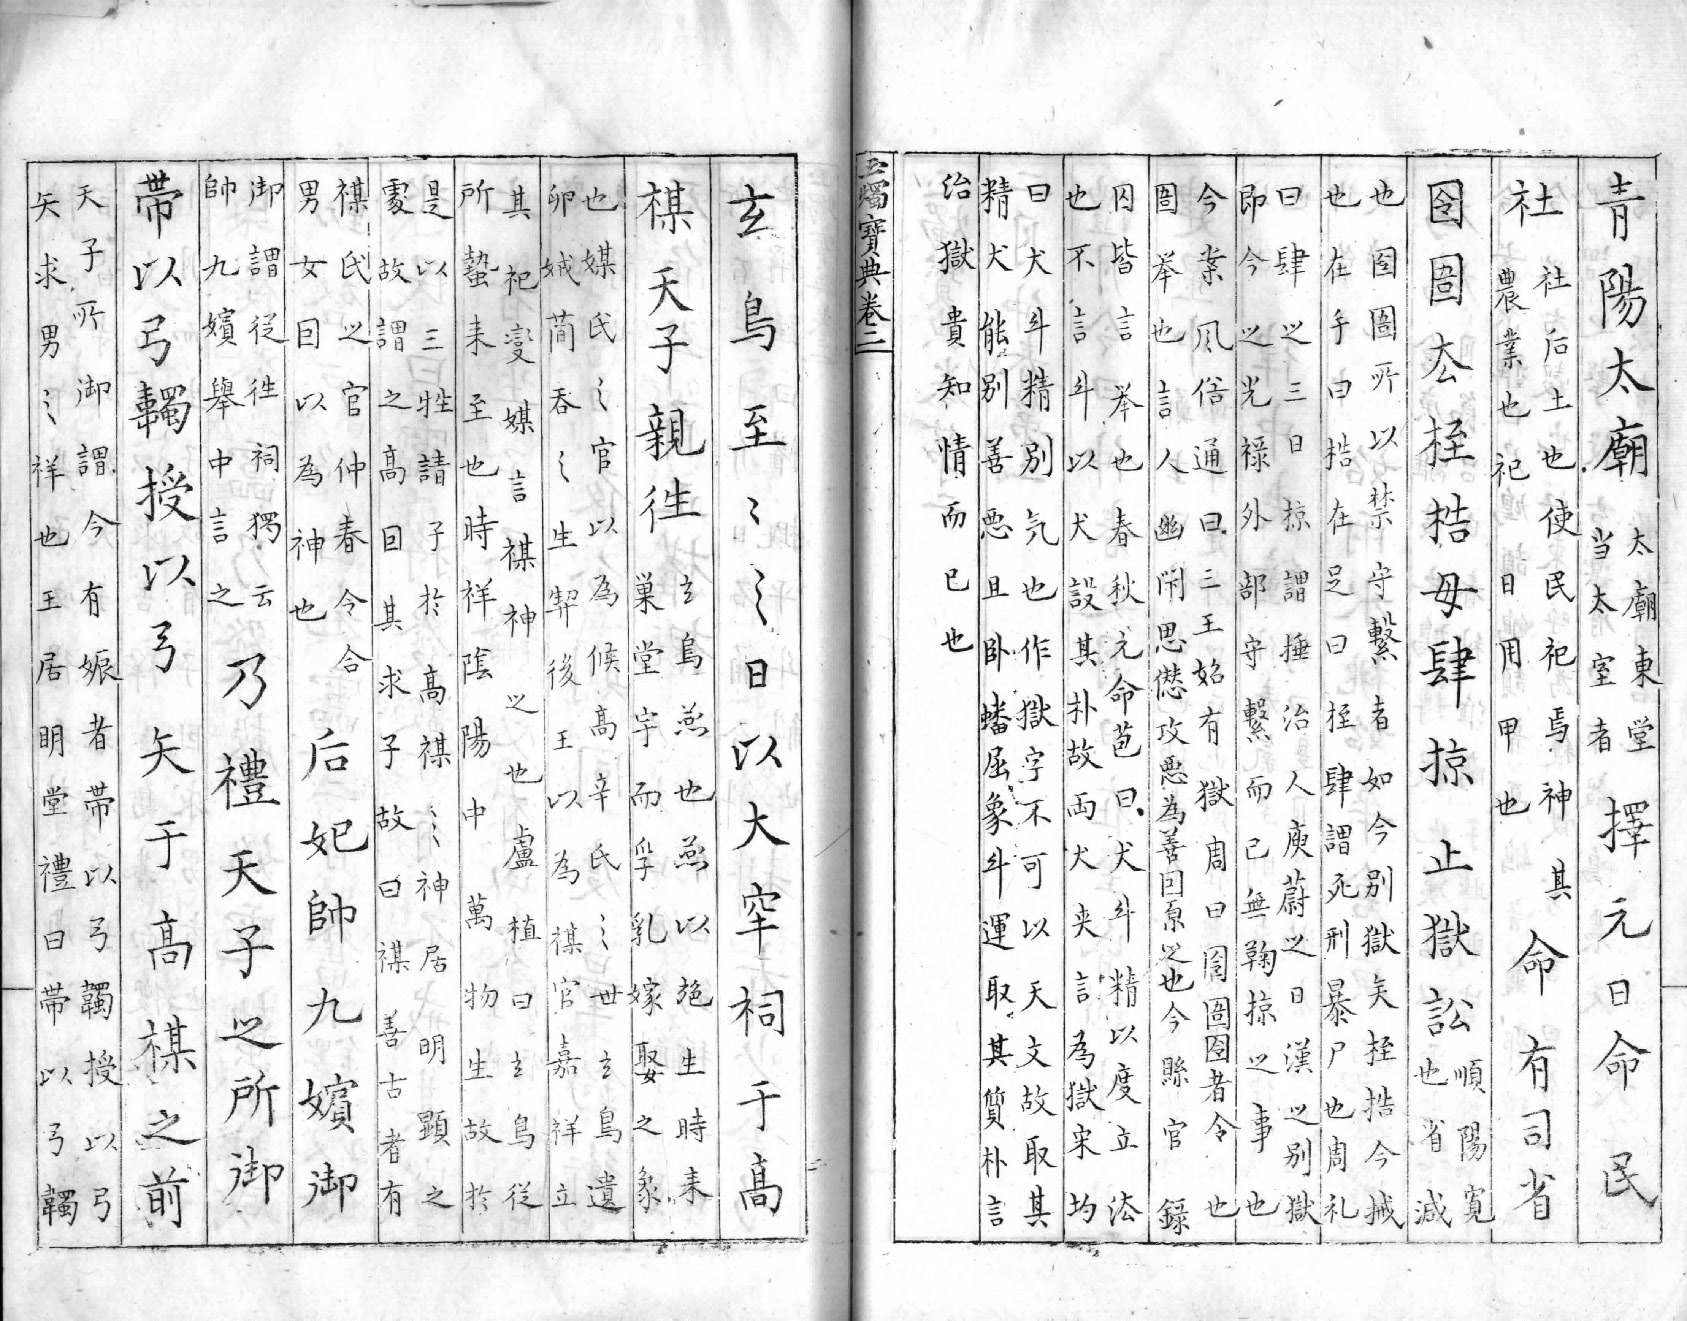 青陽太廟太廟東堂
当太室者擇元日命民
社社后土也使民祀焉神其
農業也祀日用甲也命有司省
囹圄厺桎梏毋肆掠止獄訟順陽寛
也省減
也囹圄所以禁守繫者如今别獄矣桎梏今械
也在手曰梏在足曰桎肆謂死刑暴尸也周礼
曰肆之三日掠謂捶治人庾蔚之曰漢之别獄
即今之光禄外部守繫而已無鞫掠之事也
今案風俗通曰三王始有獄周曰囹圄囹者令也
圄举也言人幽闭思愆改悪為善回原之也今縣官録
囚皆言举也春秋元命苞曰犬斗精以度立法
也不言斗以犬設其扑故両犬夹言為獄宋均
曰犬斗精别气也作獄字不可以天文故取其
精犬能别善悪且卧蟠屈象斗運取其質朴言
治獄貴知情而已也
玉燭寶典卷二
玄鳥至〻〻日以大窂祠于高
禖天子親徃玄鳥燕也燕以施生時来
巢堂宇而孚乳嫁娶之象
也媒氏〻官以為候高辛氏〻世玄鳥遺
卵娀簡吞〻生契後王以為禖官嘉祥立
其祀變媒言禖神之也盧植曰玄鳥従
所蟄来至也時祥陰陽中萬物生故於
是以三牲請子於高禖〻神居明顯之
處故謂之高因其求子故曰禖善古者有
禖氏之官仲春令合
男女因以為神也后妃帥九嬪御
御謂従徃祠獨云
帥九嬪舉中言之乃禮天子之所御
帯以弓韣授以弓矢于高禖之前
天子所御謂今有娠者帯以弓韣授以弓
矢求男〻祥也王居明堂禮曰帯以弓韣